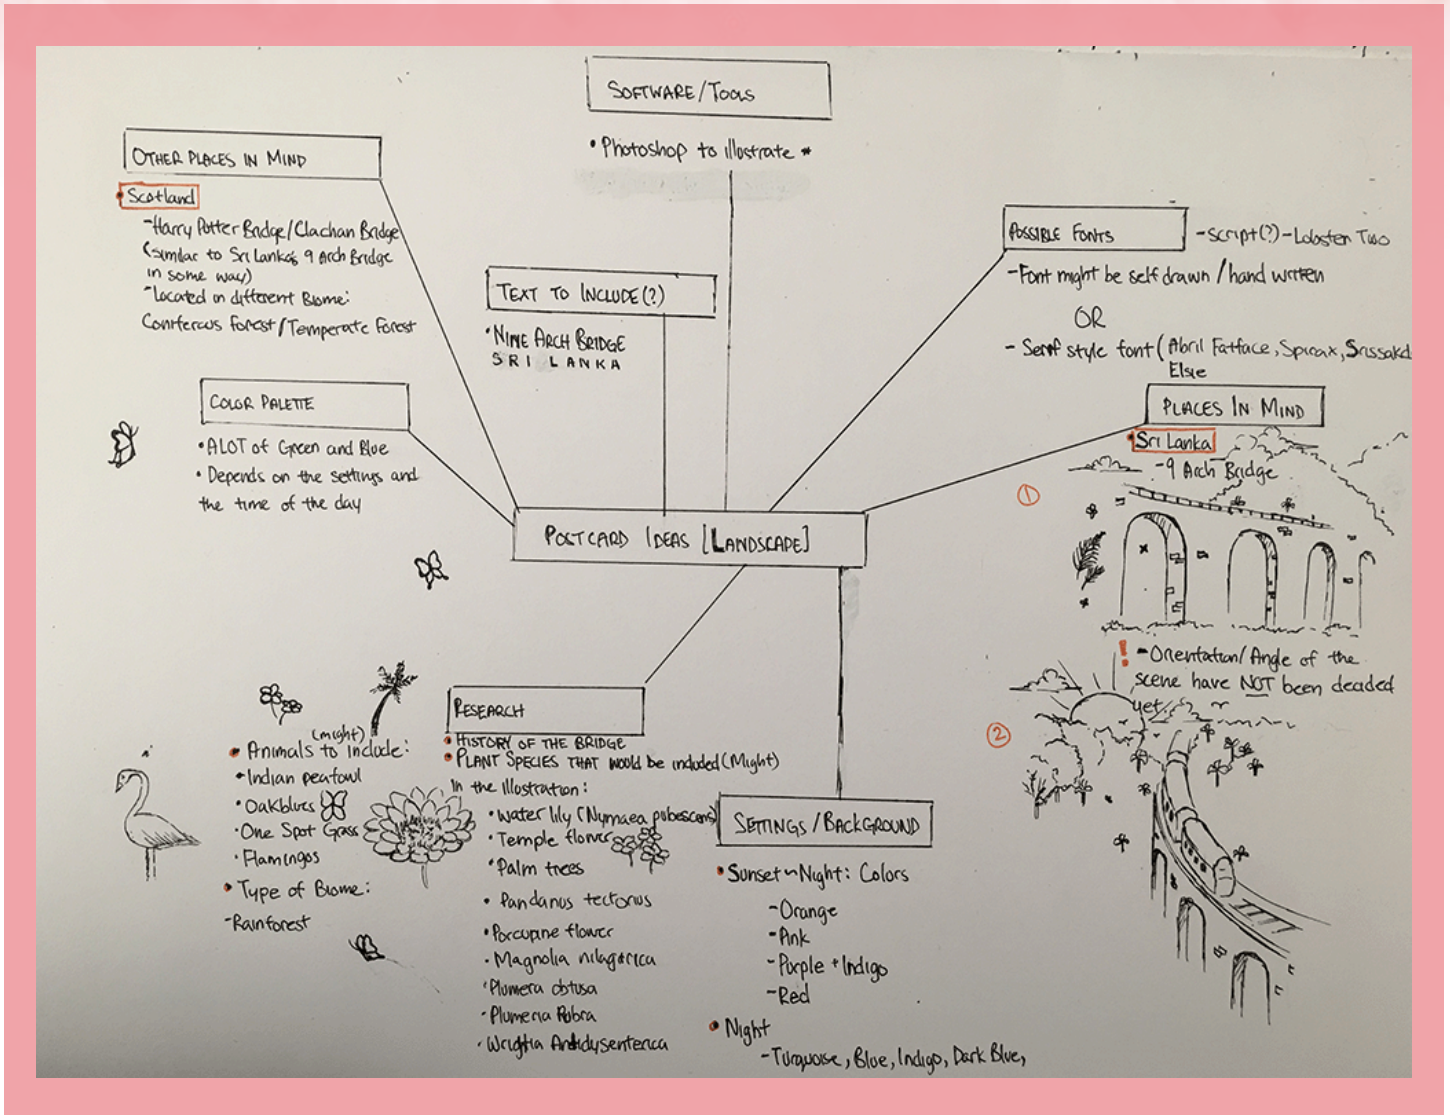 SOFTWARE/TOOLS
• Photoshop to illustrate *
OTHER PLACES IN MIND
• Scotland
- Harry Potter Bridge/Clachan Bridge
(similar to Sri Lanka's 9 Arch Bridge
in some way)
- Located in different Biome:
Coniferous forest/Temperate Forest
TEXT TO INCLUDE(?)
• NINE ARCH BRIDGE
SRI LANKA
POSSIBLE FONTS
- script(?) - Lobster Two
- Font might be self drawn / hand written
OR
- Serif style font (Abril Fatface, Spirax,
Elsie
COLOR PALETTE
• ALOT of Green and Blue
• Depends on the settings and
the time of the day
PLACES IN MIND
• Sri Lanka
- 9 Arch Bridge
1
! - Orientation/Angle of the
scene have NOT been decided
yet.
2
POSTCARD IDEAS [LANDSCAPE]
(might)
• Animals to include:
• Indian peafowl
• Oakblues
• One Spot Grass
• Flamingos
• Type of Biome:
- Rainforest
RESEARCH
• HISTORY OF THE BRIDGE
• PLANT SPECIES THAT would be included (Might)
in the illustration:
• water lily (Nymaea pubescens)
• Temple flower
• Palm trees
• Pandanus tectorius
• Porcupine flower
• Magnolia nilagirica
• Plumera obtusa
• Plumeria Rubra
• Wrightia Antidysenterica
SETTINGS/BACKGROUND
• Sunset ~ Night: Colors
- Orange
- Pink
- Purple + Indigo
- Red
• Night
- Turquoise, Blue, Indigo, Dark Blue,